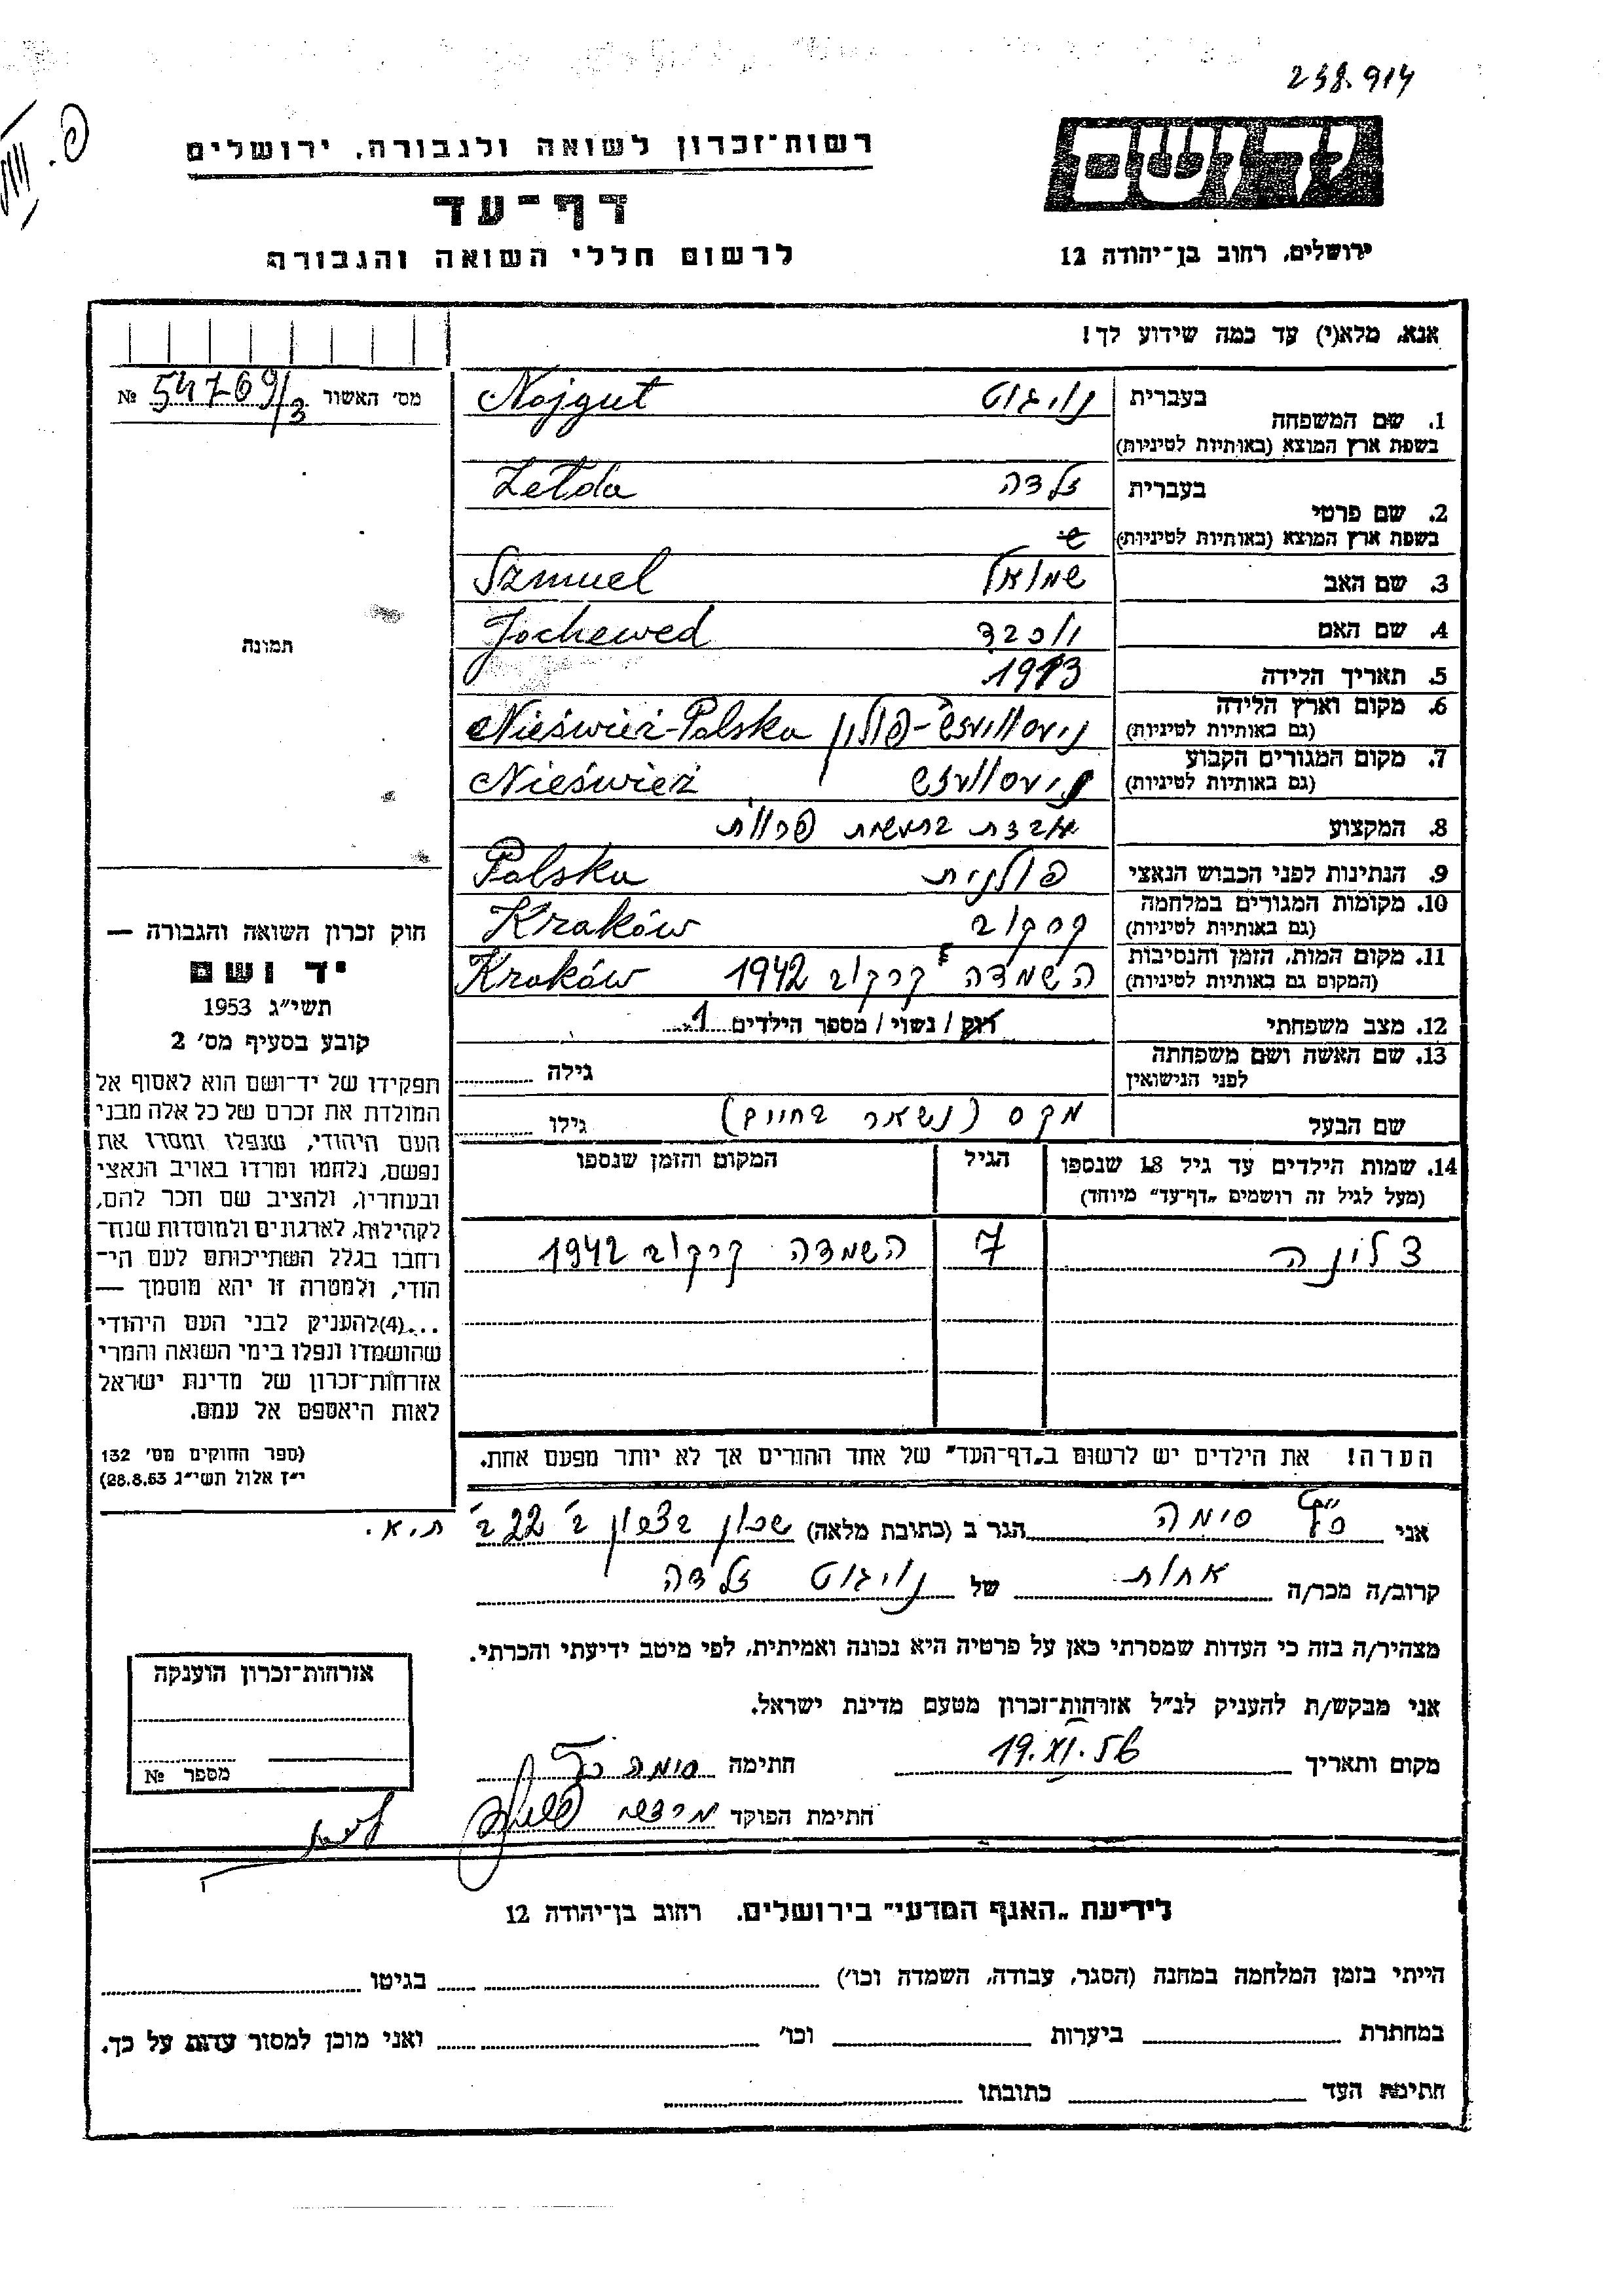 238.914
יד ושם
רשות־זכרון לשואה ולגבורה, ירושלים
דף־עד
לרשום חללי השואה והגבורה
ירושלים, רחוב בן־יהודה 12
אנא, מלא(י) עד כמה שידוע לך!
מס' האשור 54769/3 №
תמונה
1. שם המשפחה בעברית נויגוט Nojgut
בשפת ארץ המוצא (באותיות לטיניות)
2. שם פרטי בעברית זלדה Zelda
בשפת ארץ המוצא (באותיות לטיניות)
3. שם האב שמואל Szmuel
4. שם האם יוכבד Jochewed
5. תאריך הלידה 1913
6. מקום וארץ הלידה ניסוויזש־פולין Nieśwież-Polska
(גם באותיות לטיניות)
7. מקום המגורים הקבוע Nieśwież
(גם באותיות לטיניות)
8. המקצוע
9. הנתינות לפני הכבוש הנאצי פולנית Polska
10. מקומות המגורים במלחמה קרקוב Kraków
(גם באותיות לטיניות)
11. מקום המות, הזמן והנסיבות השמדה קרקוב 1942 Kraków
(המקום גם באותיות לטיניות)
12. מצב משפחתי רוק / נשוי / מספר הילדים 1
13. שם האשה ושם משפחתה לפני הנישואין גילה
שם הבעל מקס (נשאר בחיים) גילו
14. שמות הילדים עד גיל 18 שנספו הגיל המקום והזמן שנספו
(מעל לגיל זה רושמים „דף־עד" מיוחד)
צלינה 7 השמדה קרקוב 1942
חוק זכרון השואה והגבורה —
יד ושם
תשי"ג 1953
קובע בסעיף מס' 2
תפקידו של יד־ושם הוא לאסוף אל
המולדת את זכרם של כל אלה מבני
העם היהודי, שנפלו ומסרו את
נפשם, נלחמו ומרדו באויב הנאצי
ובעוזריו, ולהציב שם וזכר להם,
לקהילות, לארגונים ולמוסדות שנח־
רבו בגלל השתייכותם לעם הי־
הודי, ולמטרה זו יהא מוסמך —
...(4)להעניק לבני העם היהודי
שהושמדו ונפלו בימי השואה והמרי
אזרחות־זכרון של מדינת ישראל
לאות היאספם אל עמם.
(ספר החוקים מס' 132
י"ז אלול תשי"ג 28.8.53)
הערה! את הילדים יש לרשום ב„דף־העד" של אחד ההורים אך לא יותר מפעם אחת.
אני כץ סימה הגר ב (כתובת מלאה) שכון בצרון ב' 22 ב' ת.א.
קרוב/ה מכר/ה אחות של נויגוט זלדה
מצהיר/ה בזה כי העדות שמסרתי כאן על פרטיה היא נכונה ואמיתית, לפי מיטב ידיעתי והכרתי.
אני מבקש/ת להעניק לנ"ל אזרחות־זכרון מטעם מדינת ישראל.
מקום ותאריך 19.XI.56 חתימה סימה כץ
חתימת הפוקד
אזרחות־זכרון הוענקה
מספר №
לידיעת „האגף המדעי" בירושלים. רחוב בן־יהודה 12
הייתי בזמן המלחמה במחנה (הסגר, עבודה, השמדה וכו') בגיטו
במחתרת ביערות וכו' ואני מוכן למסור עדות על כך.
חתימת העד כתובתו